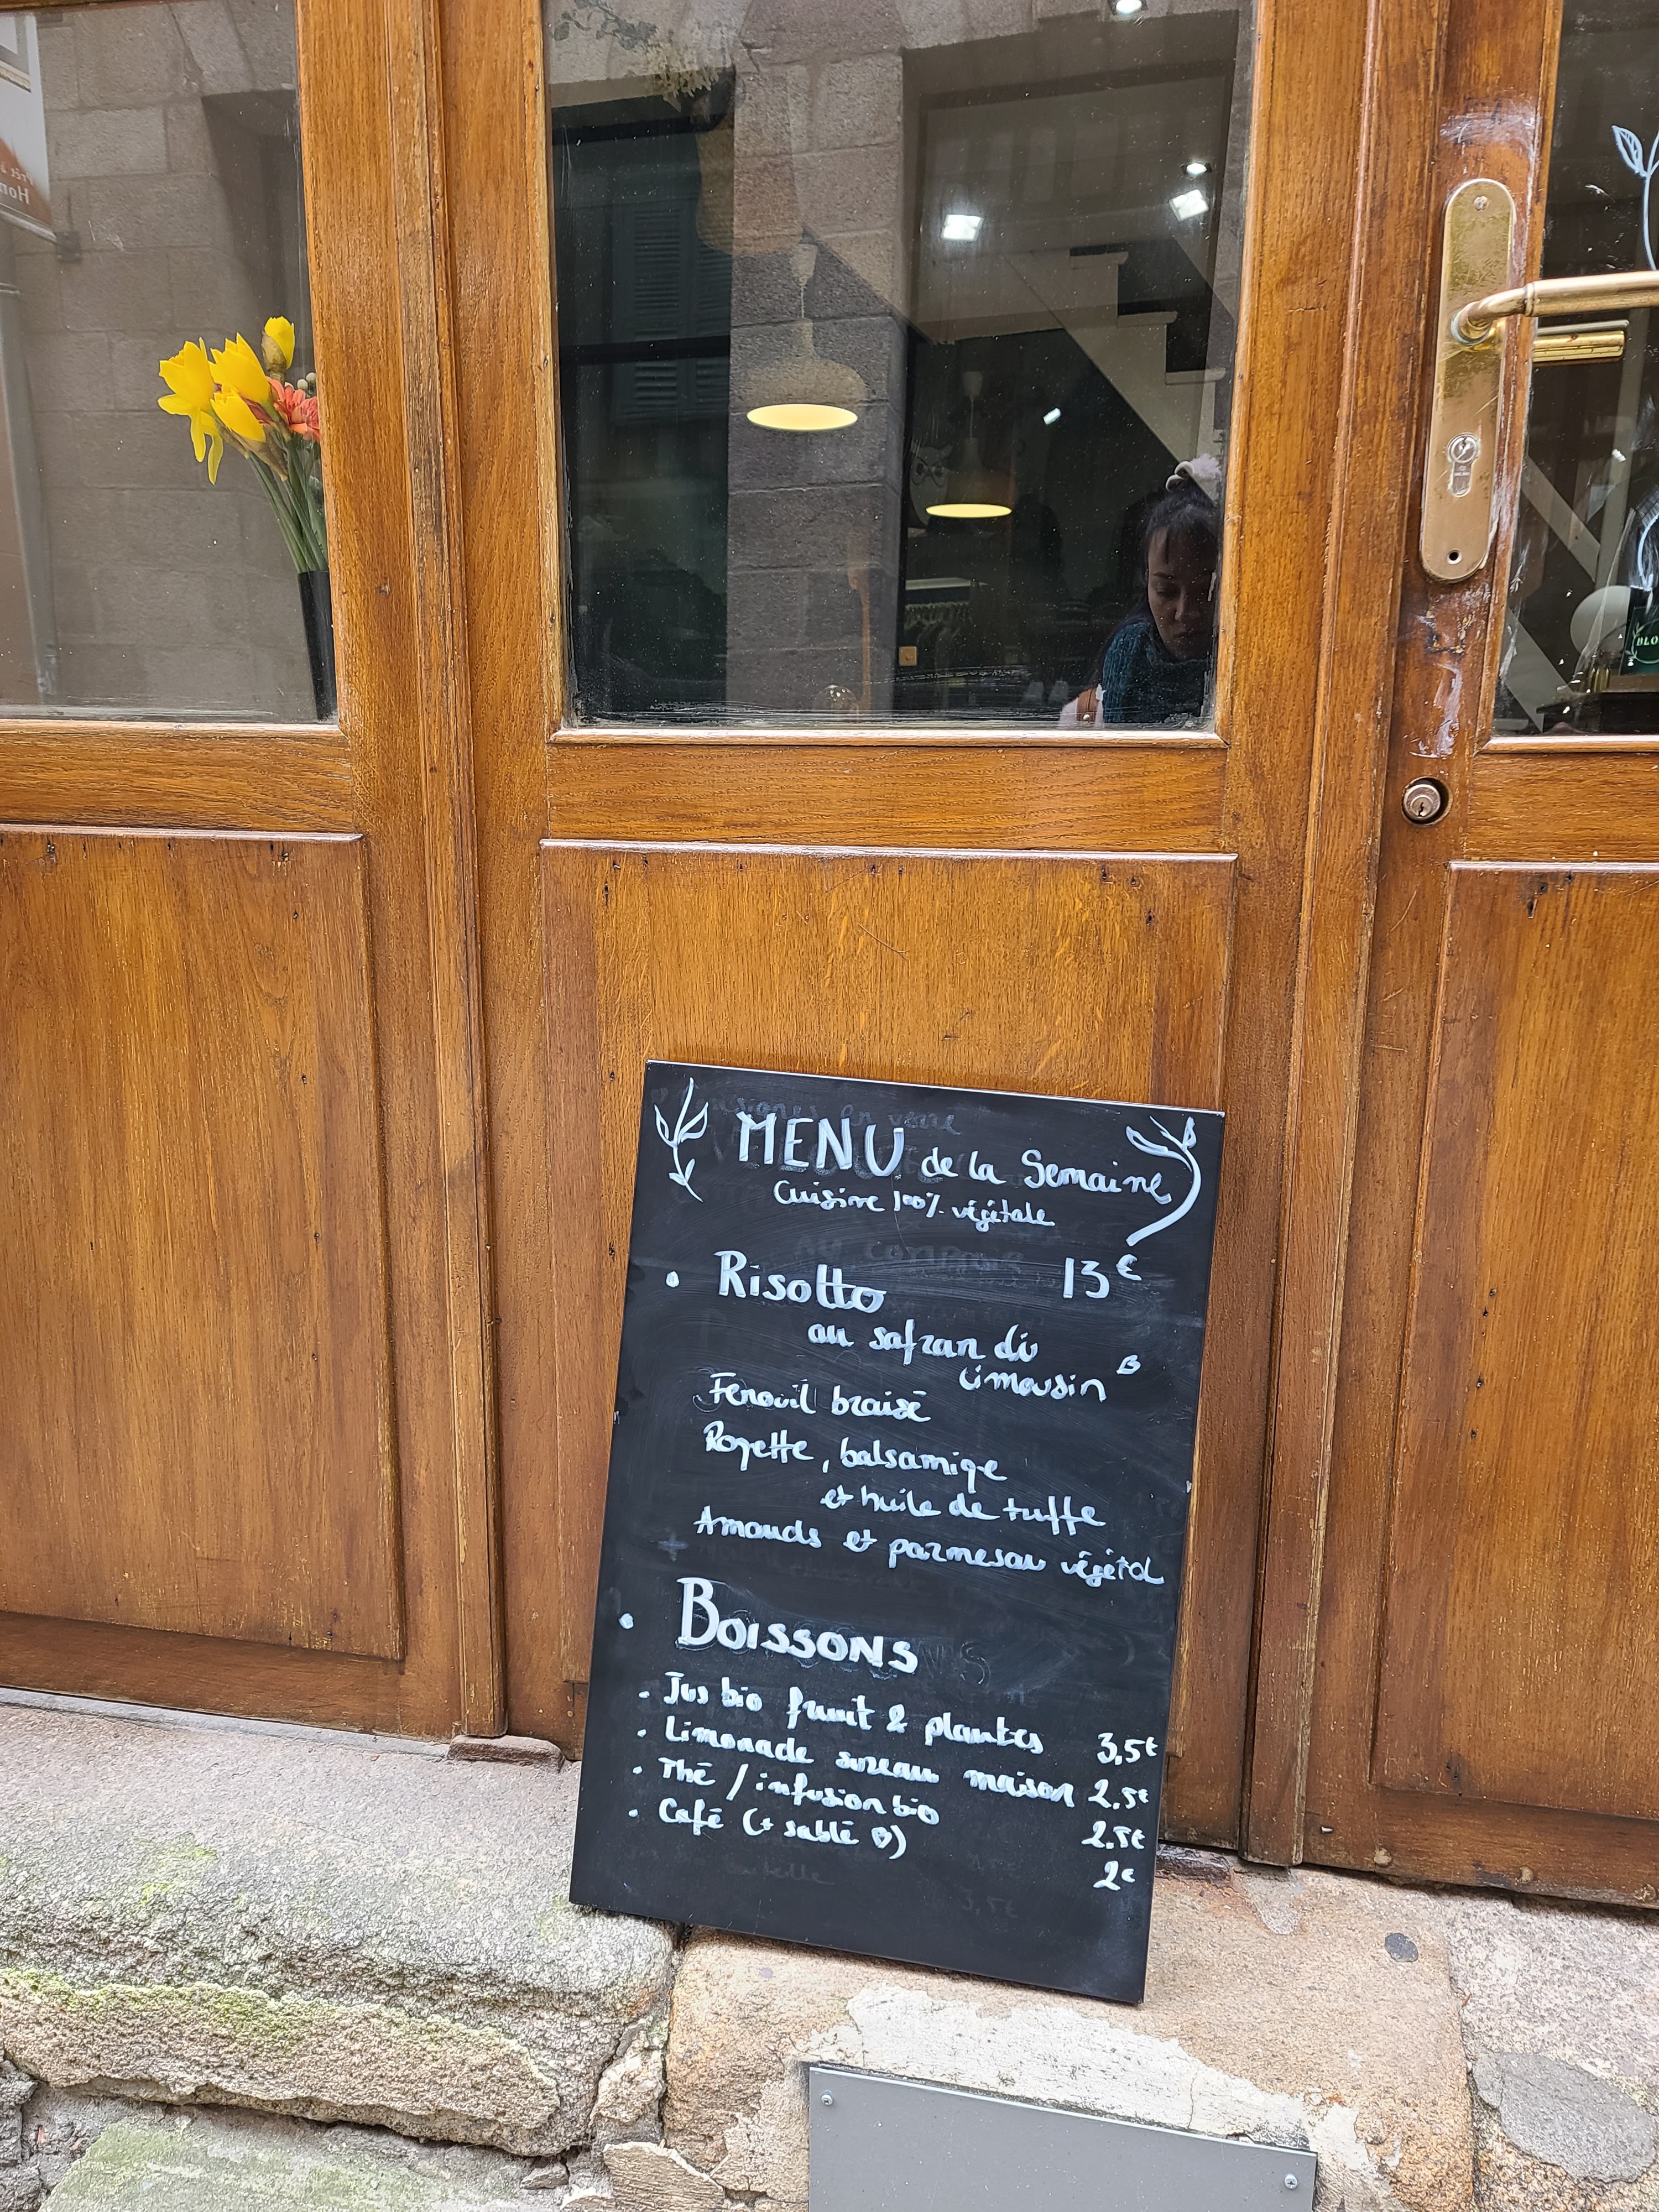 MENU de la Semaine
Cuisine 100% végétale
• Risotto 13€
au safran du
Limousin
Fenouil braisé
Roqette, balsamiqe
et huile de truffe
Amands et parmesan végétal
• BOISSONS
- Jus bio fruit & plantes 3,5€
• Limonade sureau maison 2.5€
• Thé / infusion bio 2.5€
• Café (+ sablé ♡) 2€
BLO